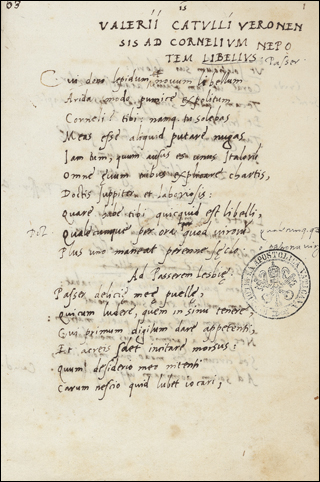 03
is
1
VALERII CATVLLI VERONEN
SIS AD CORNELIVM NEPO
TEM LIBELLVS
Passer
Cui dono lepidum novum libellum
Arida modo pumice expolitum
Corneli tibi: namq. tu solebas
Meas esse aliquid putare nugas,
Iam tum, quum ausus es unus Italorū
Omne ævum tribus explicare chartis,
Doctis Juppiter et laboriosis:
Quare habe tibi quicquid est libelli,
Qualecunque per ora quod virorū
Plus uno maneat perenne sęclo
Ad Passerem Lesbię
Passer delicię meę puellę,
Quicum ludere, quem in sinu tenere,
Cui primum digitum dare appetenti,
Et acreis solet incitare morsus;
Quum desiderio meo nitenti
Carum nescio quid lubet iocari,